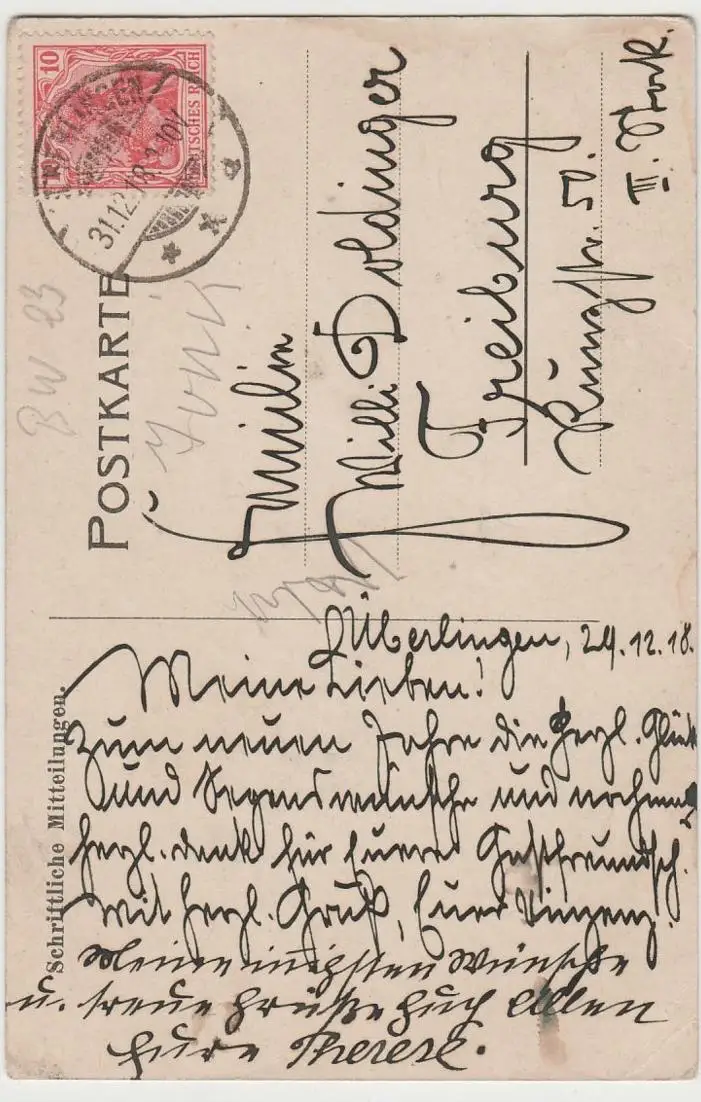 10
DEUTSCHES REICH
31.12.18
POSTKARTE
BW 23
Familie
Willi Doldinger
Freiburg
50.
III. Stock.
Schriftliche Mitteilungen.
Überlingen, 29.12.18.
Meine Lieben!
Zum neuen Jahre die herzl. Glück
und Segenswünsche und nochmals
herzl. Dank für Euere Gastfreundsch.
Mit herzl. Gruß, Euer Vinzenz.
Meine innigsten Wünsche
u. treue Grüße Euch Allen
Eure Therese.